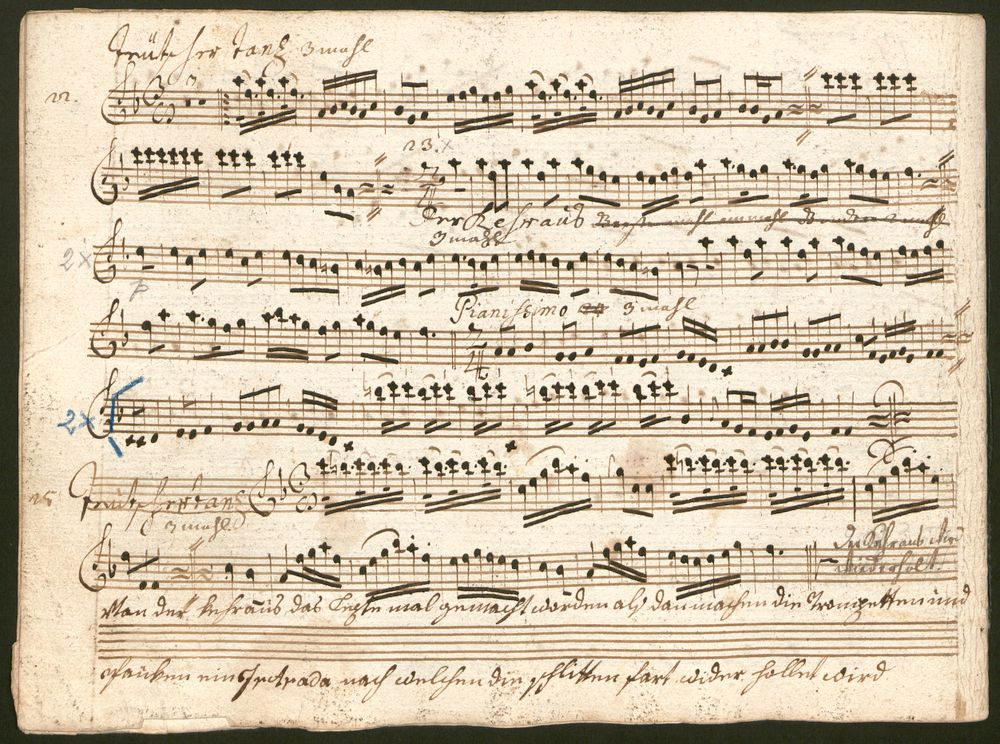 Teütscher Tanz 3 mahl
22.
3
23. x
Der Kehraus
3 mahl
2x
p
Pianissimo 3 mahl
2x
25
Teütscher tanz
3 mahl
Der Kehraus
wiederholt.
Wan der kehraus das lezte mal gemacht worden als dan machen die Trompetten und
paucken ein Intrada nach welchen die schlitten fart wider hollet wird